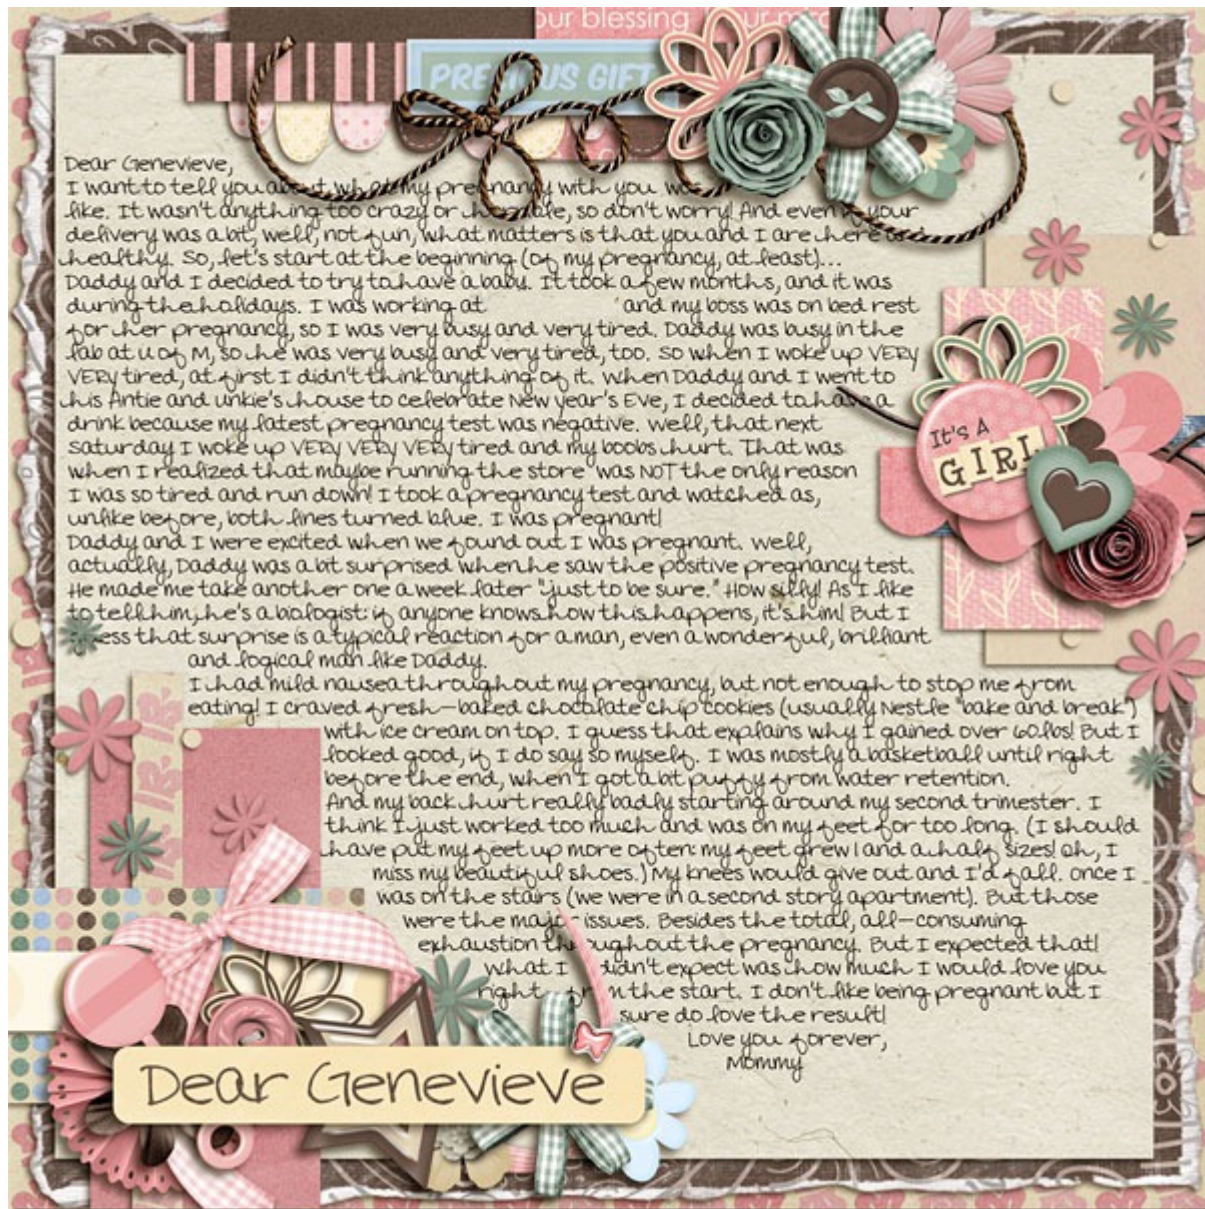 our blessing our mira
PRECIOUS GIFT
Dear Genevieve,
I want to tell you about what my pregnancy with you was
like. It wasn't anything too crazy or horrible, so don't worry! And even if your
delivery was a bit, well, not fun, what matters is that you and I are here and
healthy. So, let's start at the beginning (of my pregnancy, at least)...
Daddy and I decided to try to have a baby. It took a few months, and it was
during the holidays. I was working at and my boss was on bed rest
for her pregnancy, so I was very busy and very tired. Daddy was busy in the
lab at U of M, so he was very busy and very tired, too. So when I woke up VERY
VERY tired, at first I didn't think anything of it. When Daddy and I went to
his Antie and unkie's house to celebrate New Year's Eve, I decided to have a
drink because my latest pregnancy test was negative. Well, that next
Saturday I woke up VERY VERY VERY tired and my boobs hurt. That was
when I realized that maybe running the store was NOT the only reason
I was so tired and run down! I took a pregnancy test and watched as,
unlike before, both lines turned blue. I was pregnant!
Daddy and I were excited when we found out I was pregnant. Well,
actually, Daddy was a bit surprised when he saw the positive pregnancy test.
He made me take another one a week later "just to be sure." How silly! As I like
to tell him, he's a biologist: if anyone knows how this happens, it's him! But I
guess that surprise is a typical reaction for a man, even a wonderful, brilliant
and logical man like Daddy.
I had mild nausea throughout my pregnancy, but not enough to stop me from
eating! I craved fresh-baked chocolate chip cookies (usually Nestle "bake and break")
with ice cream on top. I guess that explains why I gained over 60 lbs! But I
looked good, if I do say so myself. I was mostly a basketball until right
before the end, when I got a bit puffy from water retention.
And my back hurt really badly starting around my second trimester. I
think I just worked too much and was on my feet for too long. (I should
have put my feet up more often: my feet grew 1 and a half sizes! Oh, I
miss my beautiful shoes.) My knees would give out and I'd fall. Once I
was on the stairs (we were in a second story apartment). But those
were the major issues. Besides the total, all-consuming
exhaustion throughout the pregnancy. But I expected that!
What I didn't expect was how much I would love you
right from the start. I don't like being pregnant but I
sure do love the result!
Love you forever,
Mommy
It's A
GIRL
Dear Genevieve